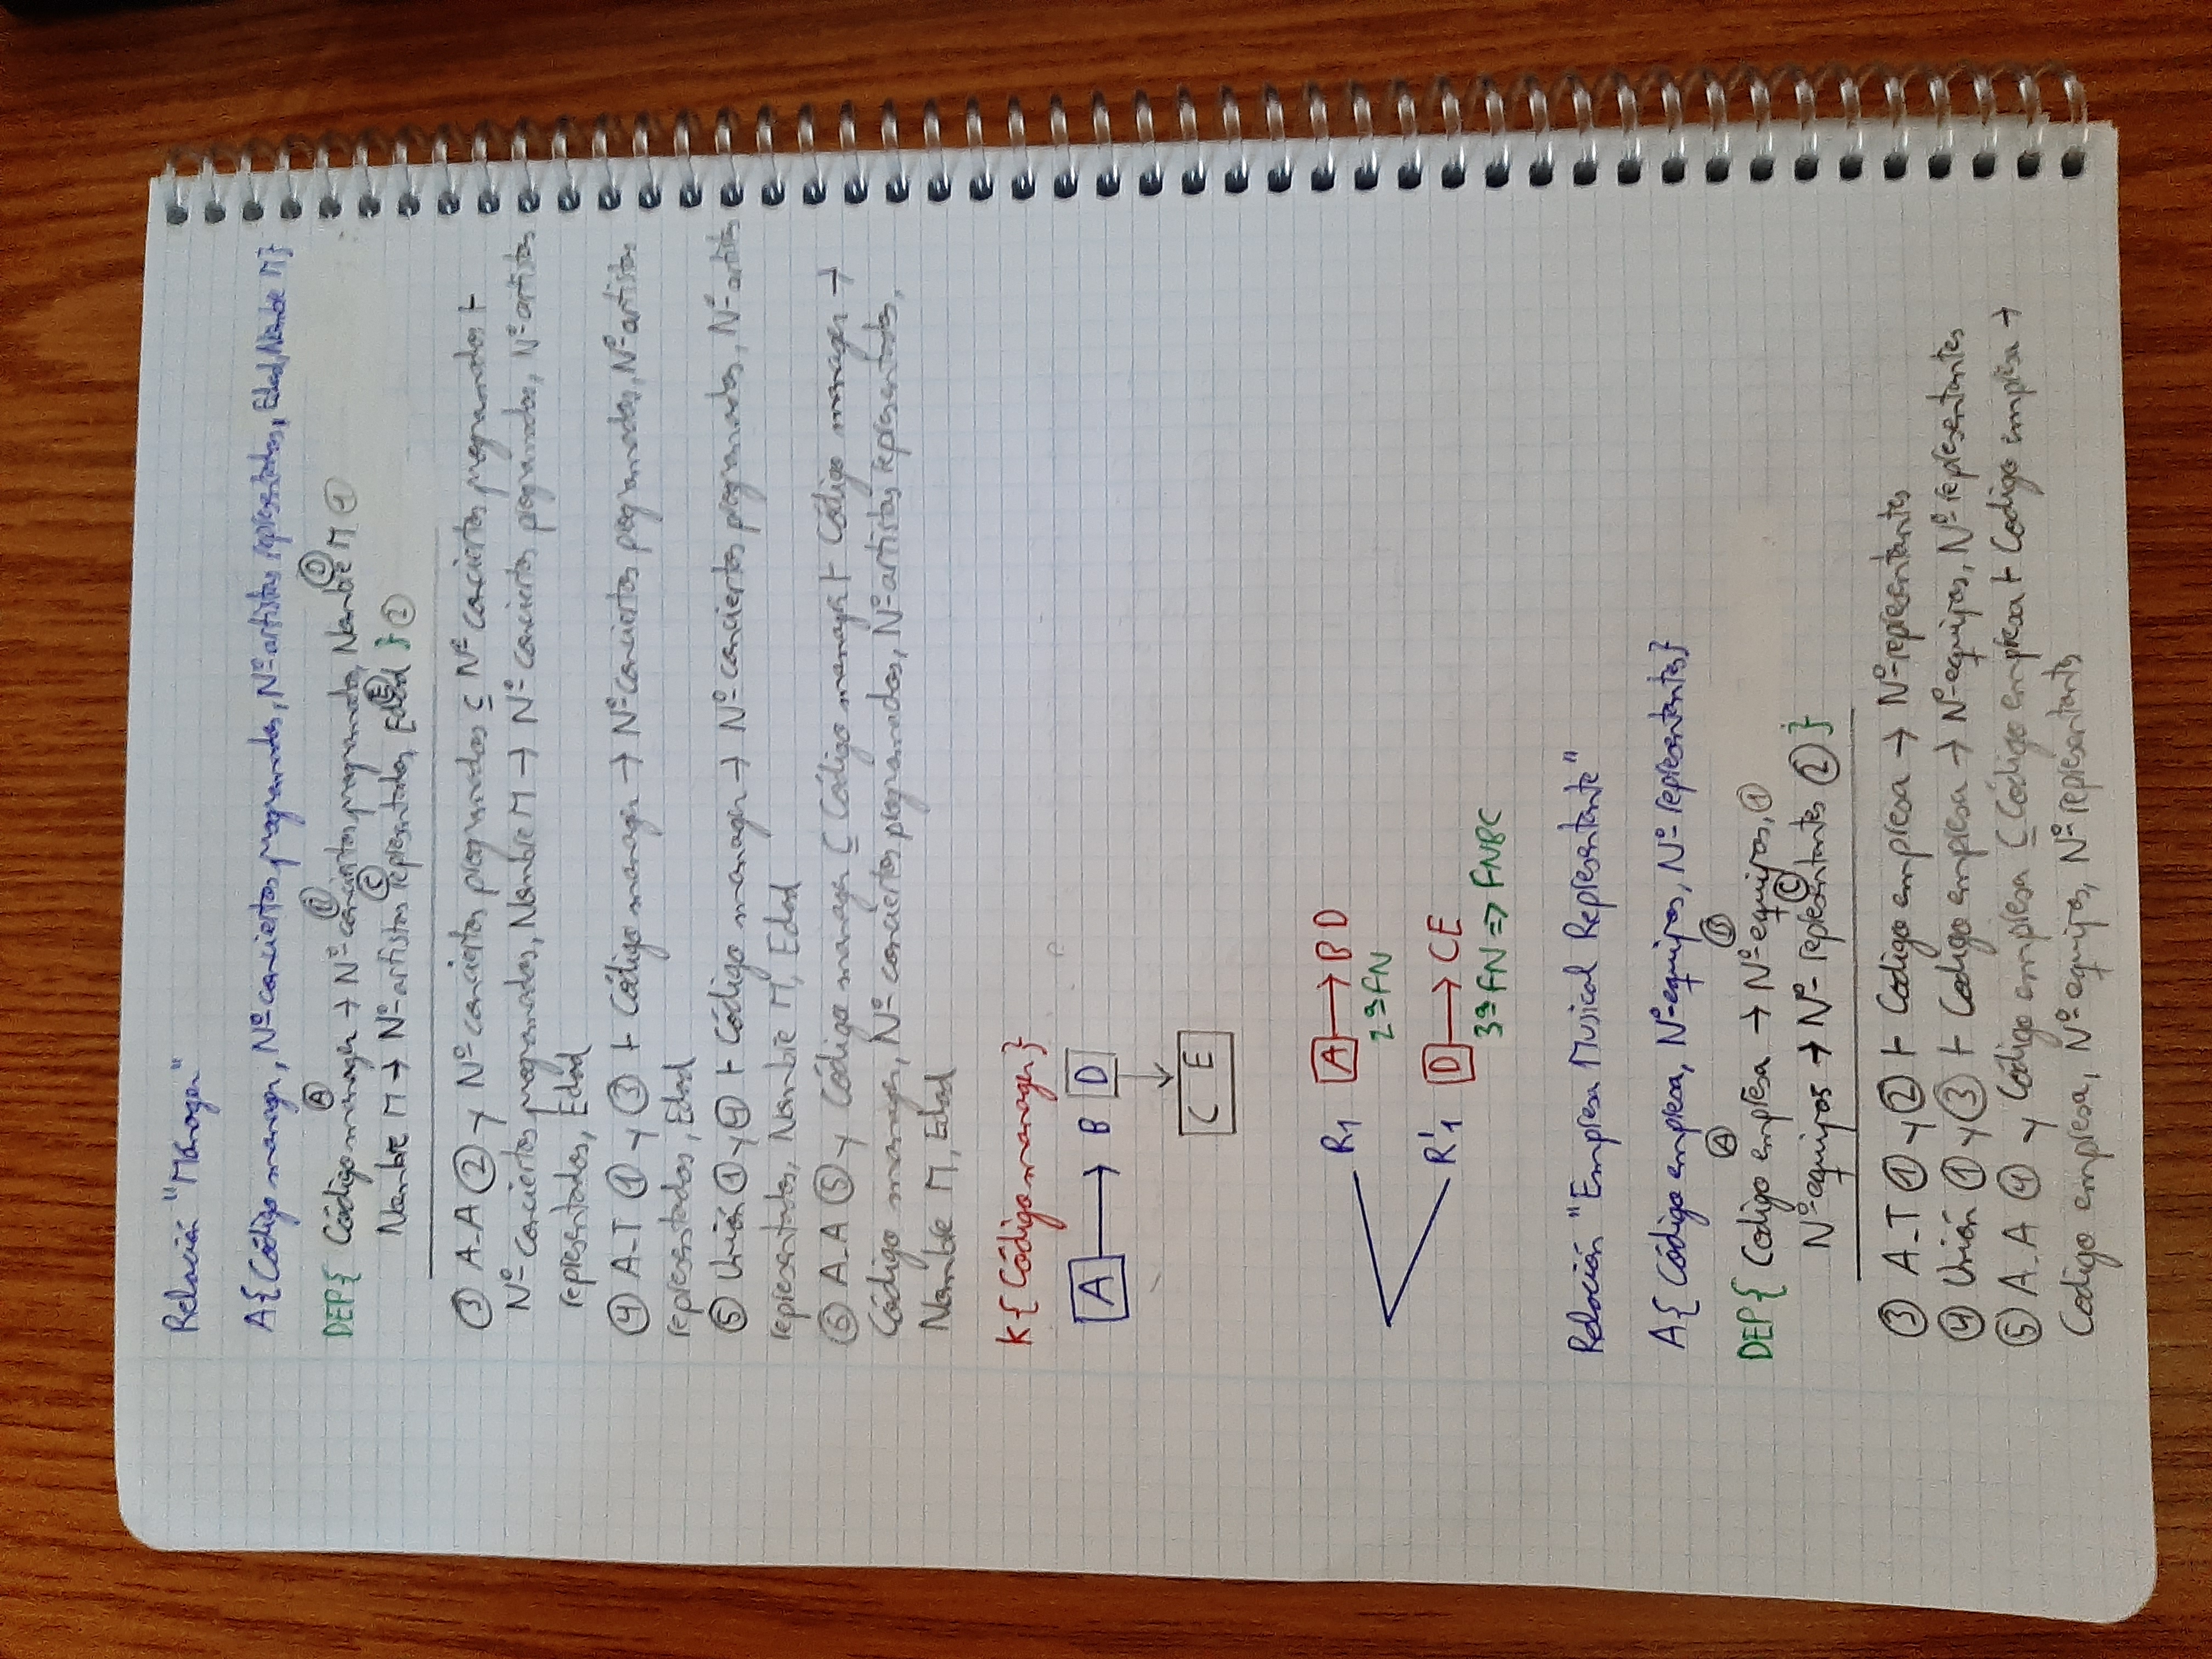 Relación "Mánager"
A{Código manager, Nº conciertos programados, Nº artistas representados, Edad, Nombre M}
A B D
DEP{ Código manager → Nº conciertos programados, Nombre M 1
C E
Nombre M → Nº artistas representados, Edad } 2
3 A-A 2 y Nº conciertos programados ⊆ Nº conciertos programados ⊢
Nº conciertos programados, Nombre M → Nº conciertos programados, Nº artistas
representados, Edad
4 A-T 1 y 3 ⊢ Código manager → Nº conciertos programados, Nº artistas
representados, Edad
5 Unión 1 y 4 ⊢ Código manager → Nº conciertos programados, Nº artistas
representados, Nombre M, Edad
6 A-A 5 y Código manager ⊆ Código manager ⊢ Código manager →
Código manager, Nº conciertos programados, Nº artistas representados,
Nombre M, Edad
K{Código manager}
A → B D
↓
C E
R1 A → B D
2ª FN
R'1 D → CE
3ª FN => FNBC
Relación "Empresa Musical Representante"
A{ Código empresa, Nº equipos, Nº representantes}
A B
DEP{ Codigo empresa → Nº equipos, 1
C
Nº equipos → Nº representantes 2 }
3 A-T 1 y 2 ⊢ Codigo empresa → Nº representantes
4 Unión 1 y 3 ⊢ Codigo empresa → Nº equipos, Nº representantes
5 A-A 4 y Código empresa ⊆ Código empresa ⊢ Codigo empresa →
Codigo empresa, Nº equipos, Nº representants